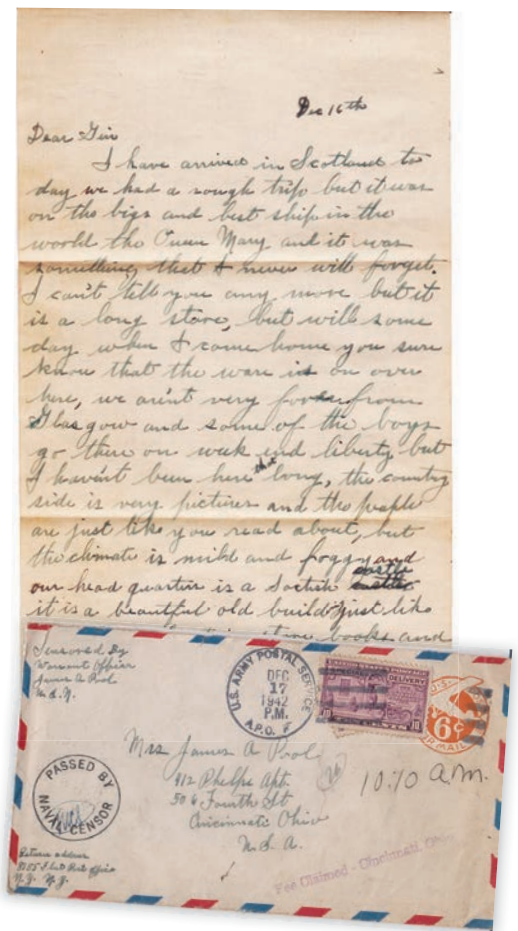 Dec 16th
Dear Gin
I have arrived in Scotland to
day we had a rough trip but it was
on the bigs and best ship in the
world the Queen Mary and it was
something that I never will forget.
I can't tell you any more but it
is a long store, but will some
day when I come home you sure
know that the ware is on over
here, we aren't very from
Glasgow and some of the boys
go there on week end liberty but
I haven't been here that long, the country
side is very pictures and the people
are just like you read about, but
the climate is mild and foggy and
our head quarters is a Scotish castle
it is a beautiful old building just like
books and
Censored By
Warrant Officer
James A Pool
U.S.N.
U.S. ARMY POSTAL SERVICE
DEC
17
1942
P.M.
A.P.O.
DELIVERY
10
10
TEN
U.S.
6¢
AIR MAIL
Mrs James A Pool
912 Phelps Apt.
506 Fourth St
Cincinnati Ohio
U.S.A.
10:10 A.M.
PASSED BY
NAVAL CENSOR
Return address
Post Office
N.Y. N.Y.
Fee Claimed - Cincinnati, Ohio